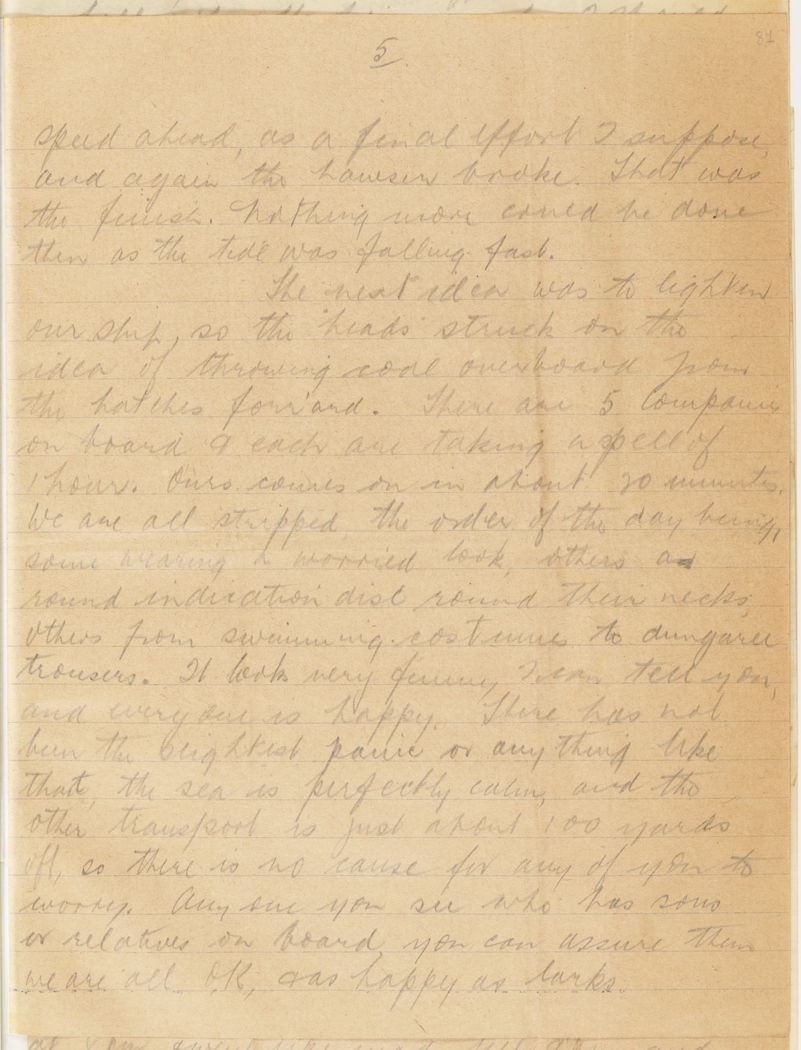 81
5.
speed ahead, as a final effort I suppose,
and again the hawser broke. That was
the finish. Nothing more could be done
then as the tide was falling fast.
The next idea was to lighten
our ship, so the "heads" struck on the
idea of throwing coal overboard from
the hatches forr'ard. There are 5 Companies
on board & each are taking a spell of
1 hour. Ours comes on in about 20 minutes.
We are all stripped, the order of the day being,
some wearing a worried look, others a
round indication disc round their necks,
others from swimming costumes to dungaree
trousers. It looks very funny, I can tell you,
and everyone is happy. There has not
been the slightest panic or anything like
that, the sea is perfectly calm, and the
other transport is just about 100 yards
off, so there is no cause for any of you to
worry. Any one you see who has sons
or relatives on board, you can assure them
we are all O.K., & as happy as larks.